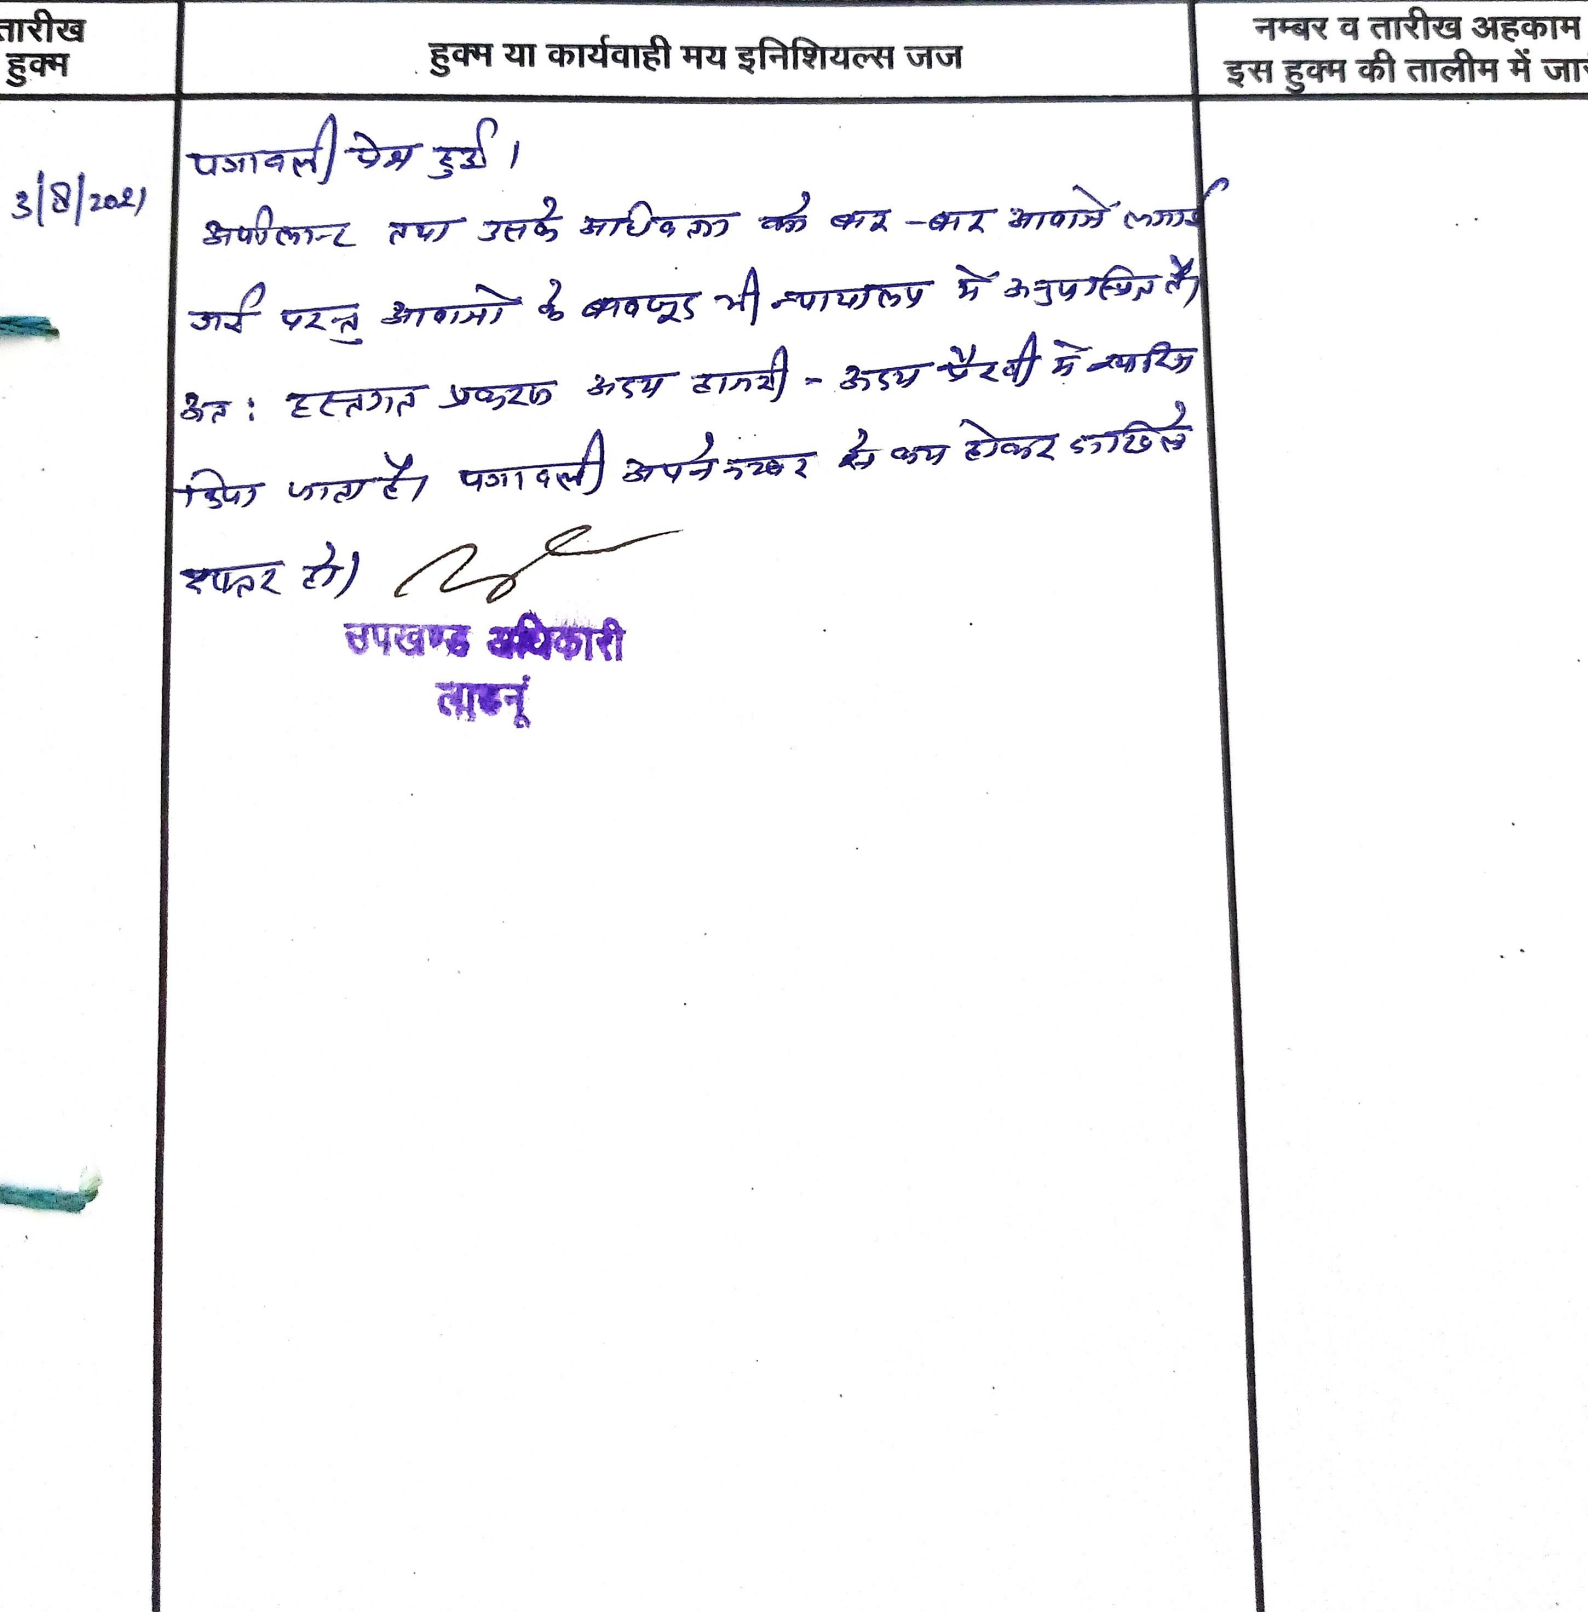 तारीख
हुक्म
हुक्म या कार्यवाही मय इनिशियल्स जज
नम्बर व तारीख अहकाम
इस हुक्म की तालीम में जा
3/8/2021
पत्रावली पेश हुई।
अपीलान्ट तथा उसके अधिवक्ता को बार-बार आवाजें लगाई
गई परन्तु आवाजों के बावजूद भी न्यायालय में अनुपस्थित है।
अत: हस्तगत प्रकरण अदम हाजरी - अदम पैरवी में खारिज
किया जाता है। पत्रावली अपने नम्बर से कम होकर दाखिले
दफ्तर हो।
उपखण्ड अधिकारी
लाडनूं